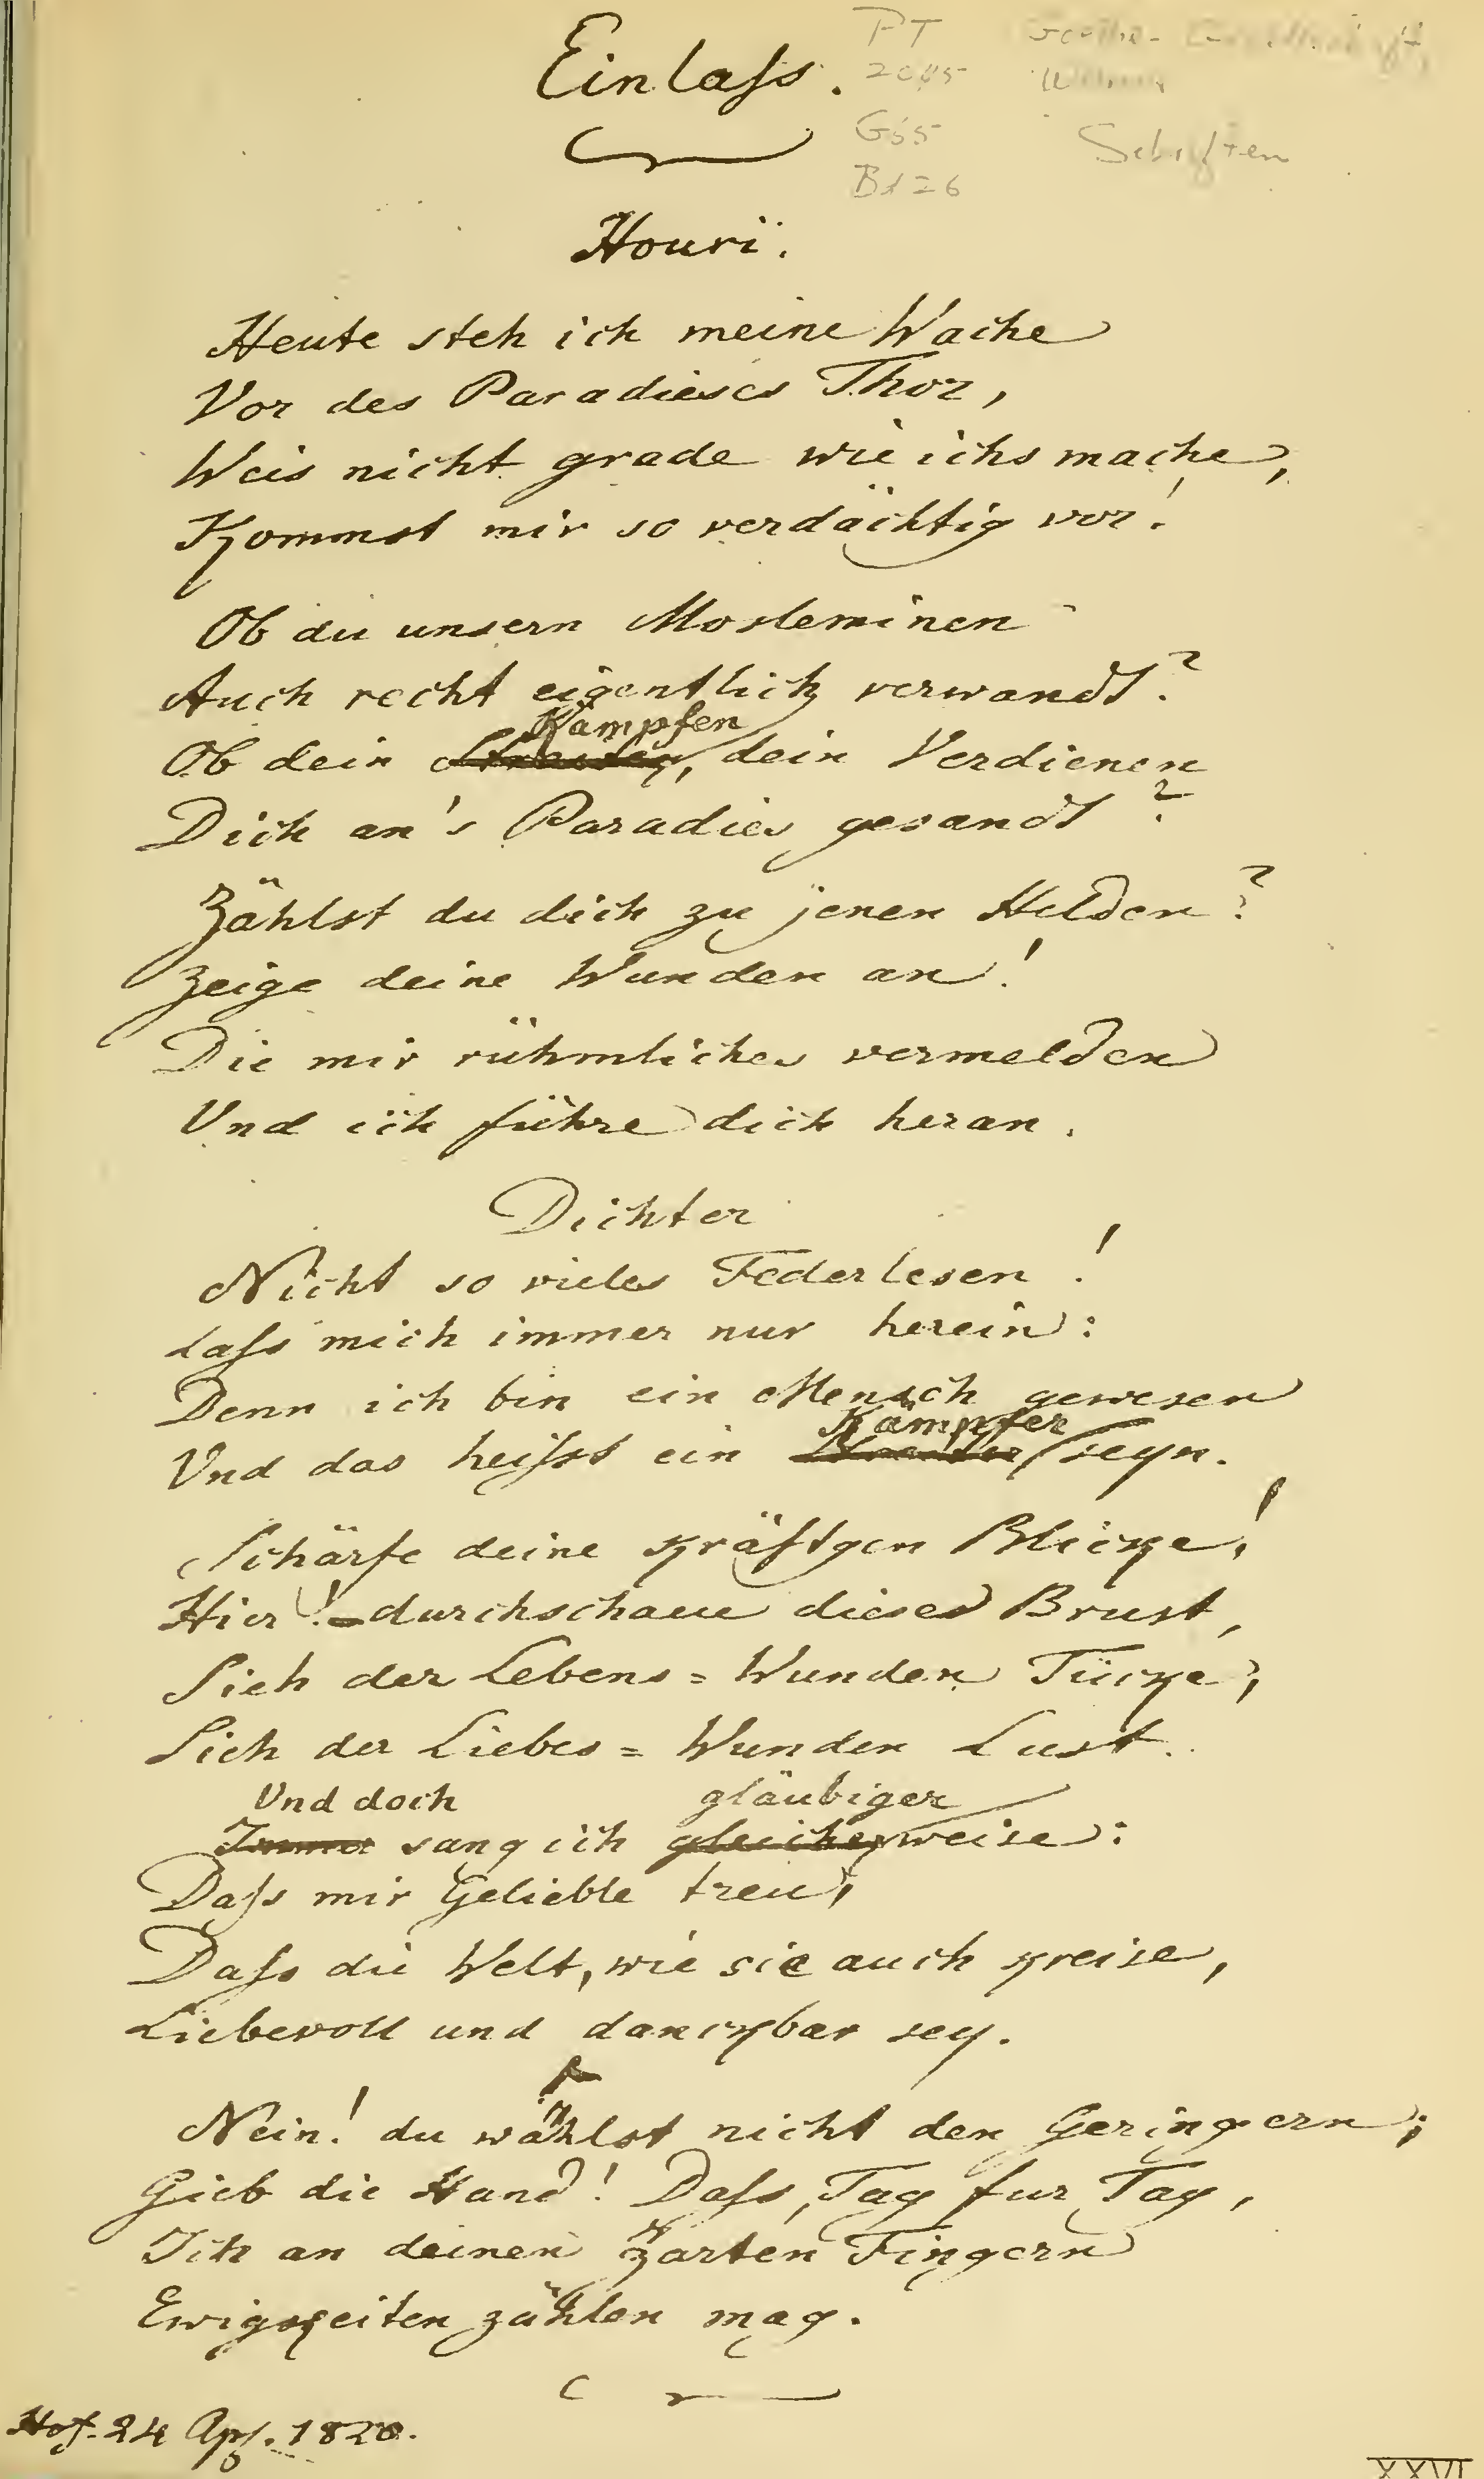 Einlass.
PT
2045
G55
Bd 26
Schriften
Houri.
Heute steh ich meine Wache
Vor des Paradieses Thor,
Weis nicht grade wie ichs mache,
Kommst mir so verdächtig vor!
Ob du unsern Mosleminen
Auch recht eigentlich verwandt?
Kämpfen
Ob dein dein Verdienen
Dich an's Paradies gesandt?
Zählst du dich zu jenen Helden?
Zeige deine Wunden an!
Die mir rühmliches vermelden
Und ich führe dich heran.
Dichter
Nicht so vieles Federlesen!
Lass mich immer nur herein:
Denn ich bin ein Mensch gewesen
Kämpfer
Und das heisst ein seyn.
Schärfe deine kräftgen Blicke!
Hier! durchschaue diese Brust,
Sieh der Lebens=Wunden Tücke,
Sieh der Liebes=Wunden Lust.
Und doch gläubiger
Immer sang ich gleicher weise:
Dass mir Geliebte treu,
Dass die Welt, wie sie auch kreise,
Liebevoll und danckbar sey.
Nein! du wählst nicht den Geringern;
Gieb die Hand! Dass, Tag fur Tag,
Ich an deinen zarten Fingern
Ewigkeiten zählen mag.
Hof. 24 Apr. 1820.
XXVI